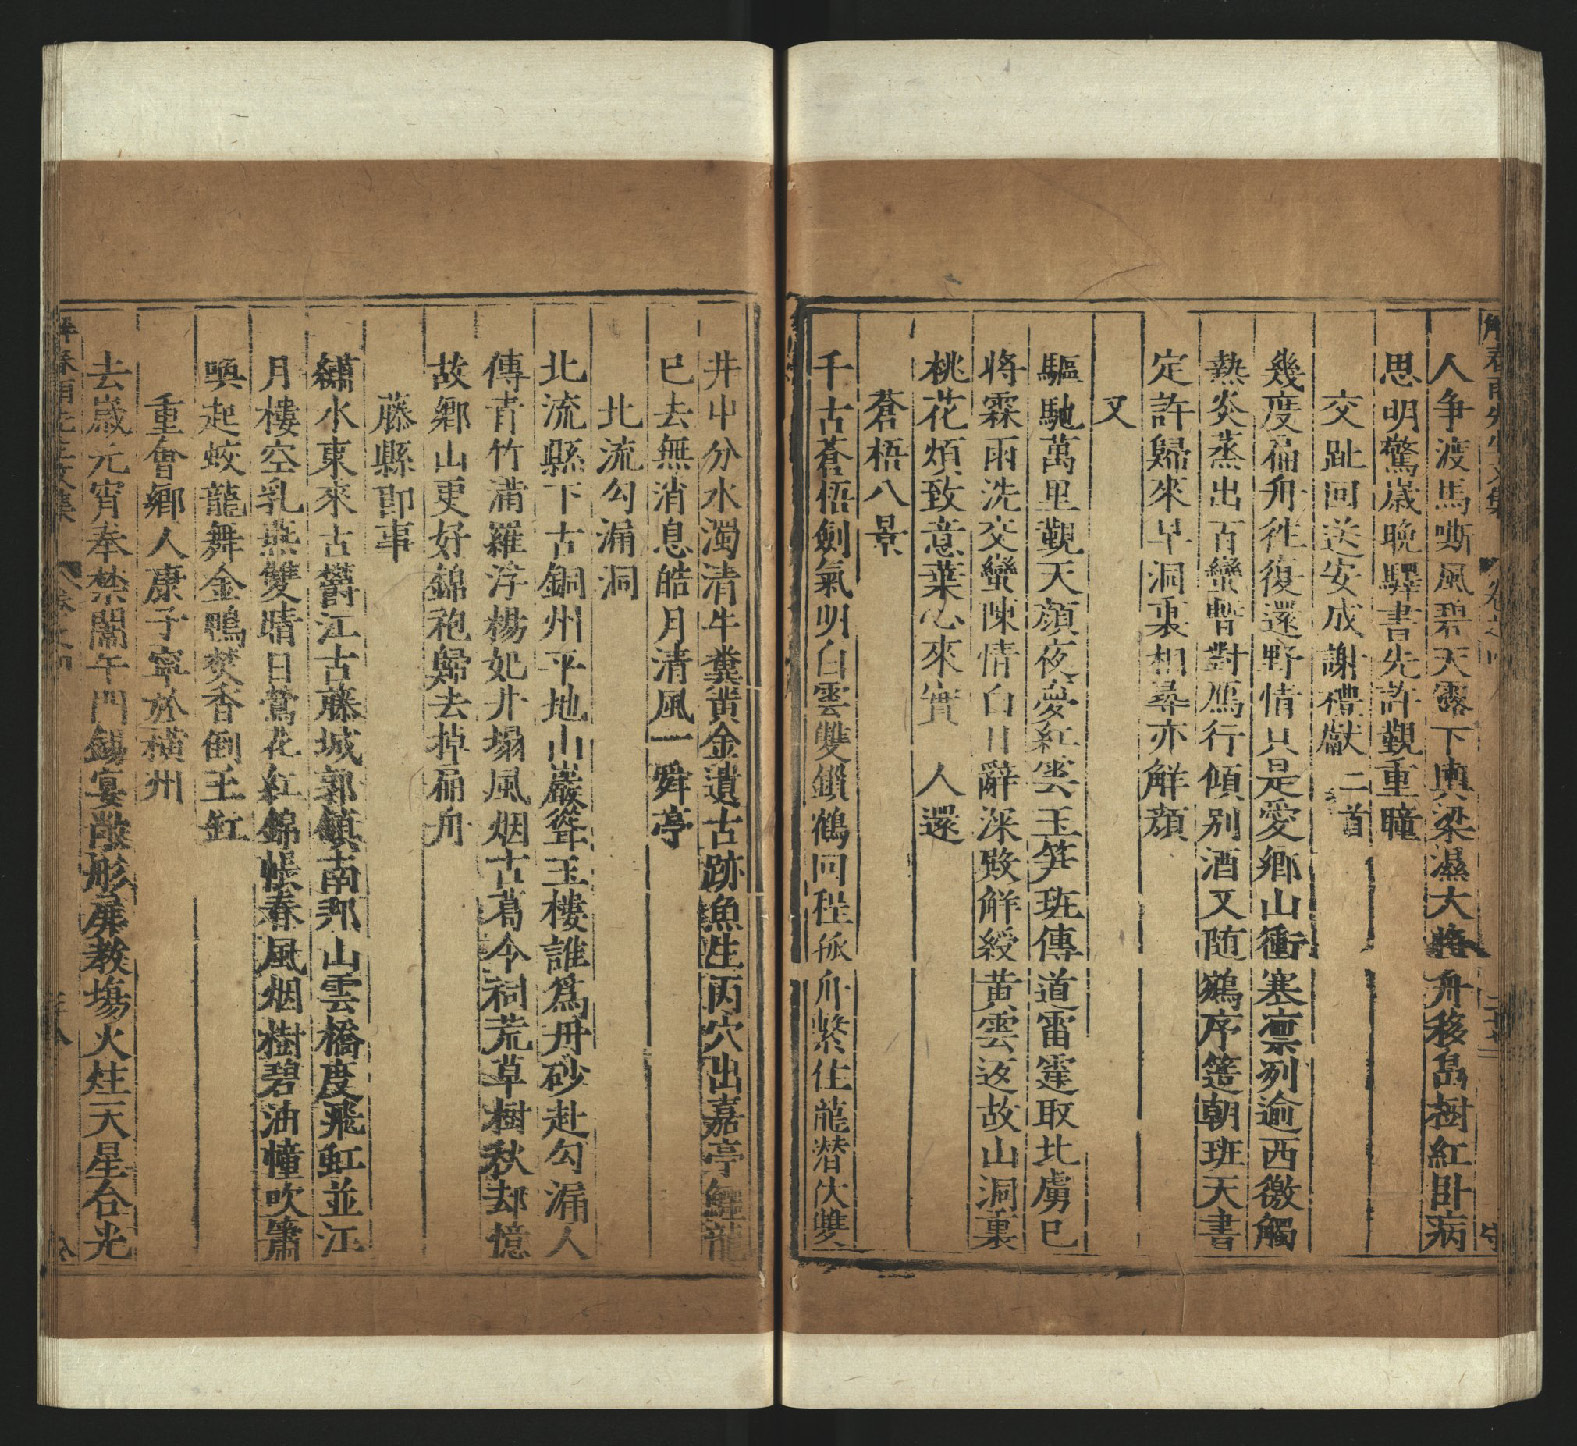 人争渡馬嘶風碧天露下輿梁濕大將舟移島樹紅卧病
思明驚歲晚驛書先許覲重瞳
交趾回送安成謝禮獻二首
幾度扁舟徃復還野情只是愛鄉山衝塞凛冽逾西徼觸
熱炎蒸出百蠻暫對鴈行傾别酒又随鵷序簉朝班天書
定許歸來早洞裏相尋亦解顔
又
驅馳萬里覲天顔夜夢紅雲玉笋班傳道雷霆取北虜已
將霖雨洗交蠻陳情白日辭深陛解綬黄雲返故山洞裏
桃花煩致意葉心來實 人還
蒼梧八景
千古蒼梧劍氣明白雲雙鎖鶴回程孤舟繫住龍潜火雙
井中分水濁清牛糞黄金遺古跡魚生丙穴出嘉亭鱷龍
已去無消息皓月清風一舜亭
北流勾漏洞
北流縣下古銅州平地山巖聳玉樓誰爲丹砂赴勾漏人
傳青竹滿羅浮楊妃井塌風烟古葛令祠荒草樹秋却憶
故鄉山更好錦袍歸去掉扁舟
藤縣即事
繡水東來古欝江古藤城郭鎮南邦山雲橋度飛虹並江
月樓空乳燕雙晴日鶯花紅錦帳春風烟樹碧油幢吹簫
喚起蛟龍舞金鴨焚香倒玉缸
重會鄉人康子寧於橫州
去歲元宵奉禁闈午門錫宴敞彤扉教塲火炷天星合光